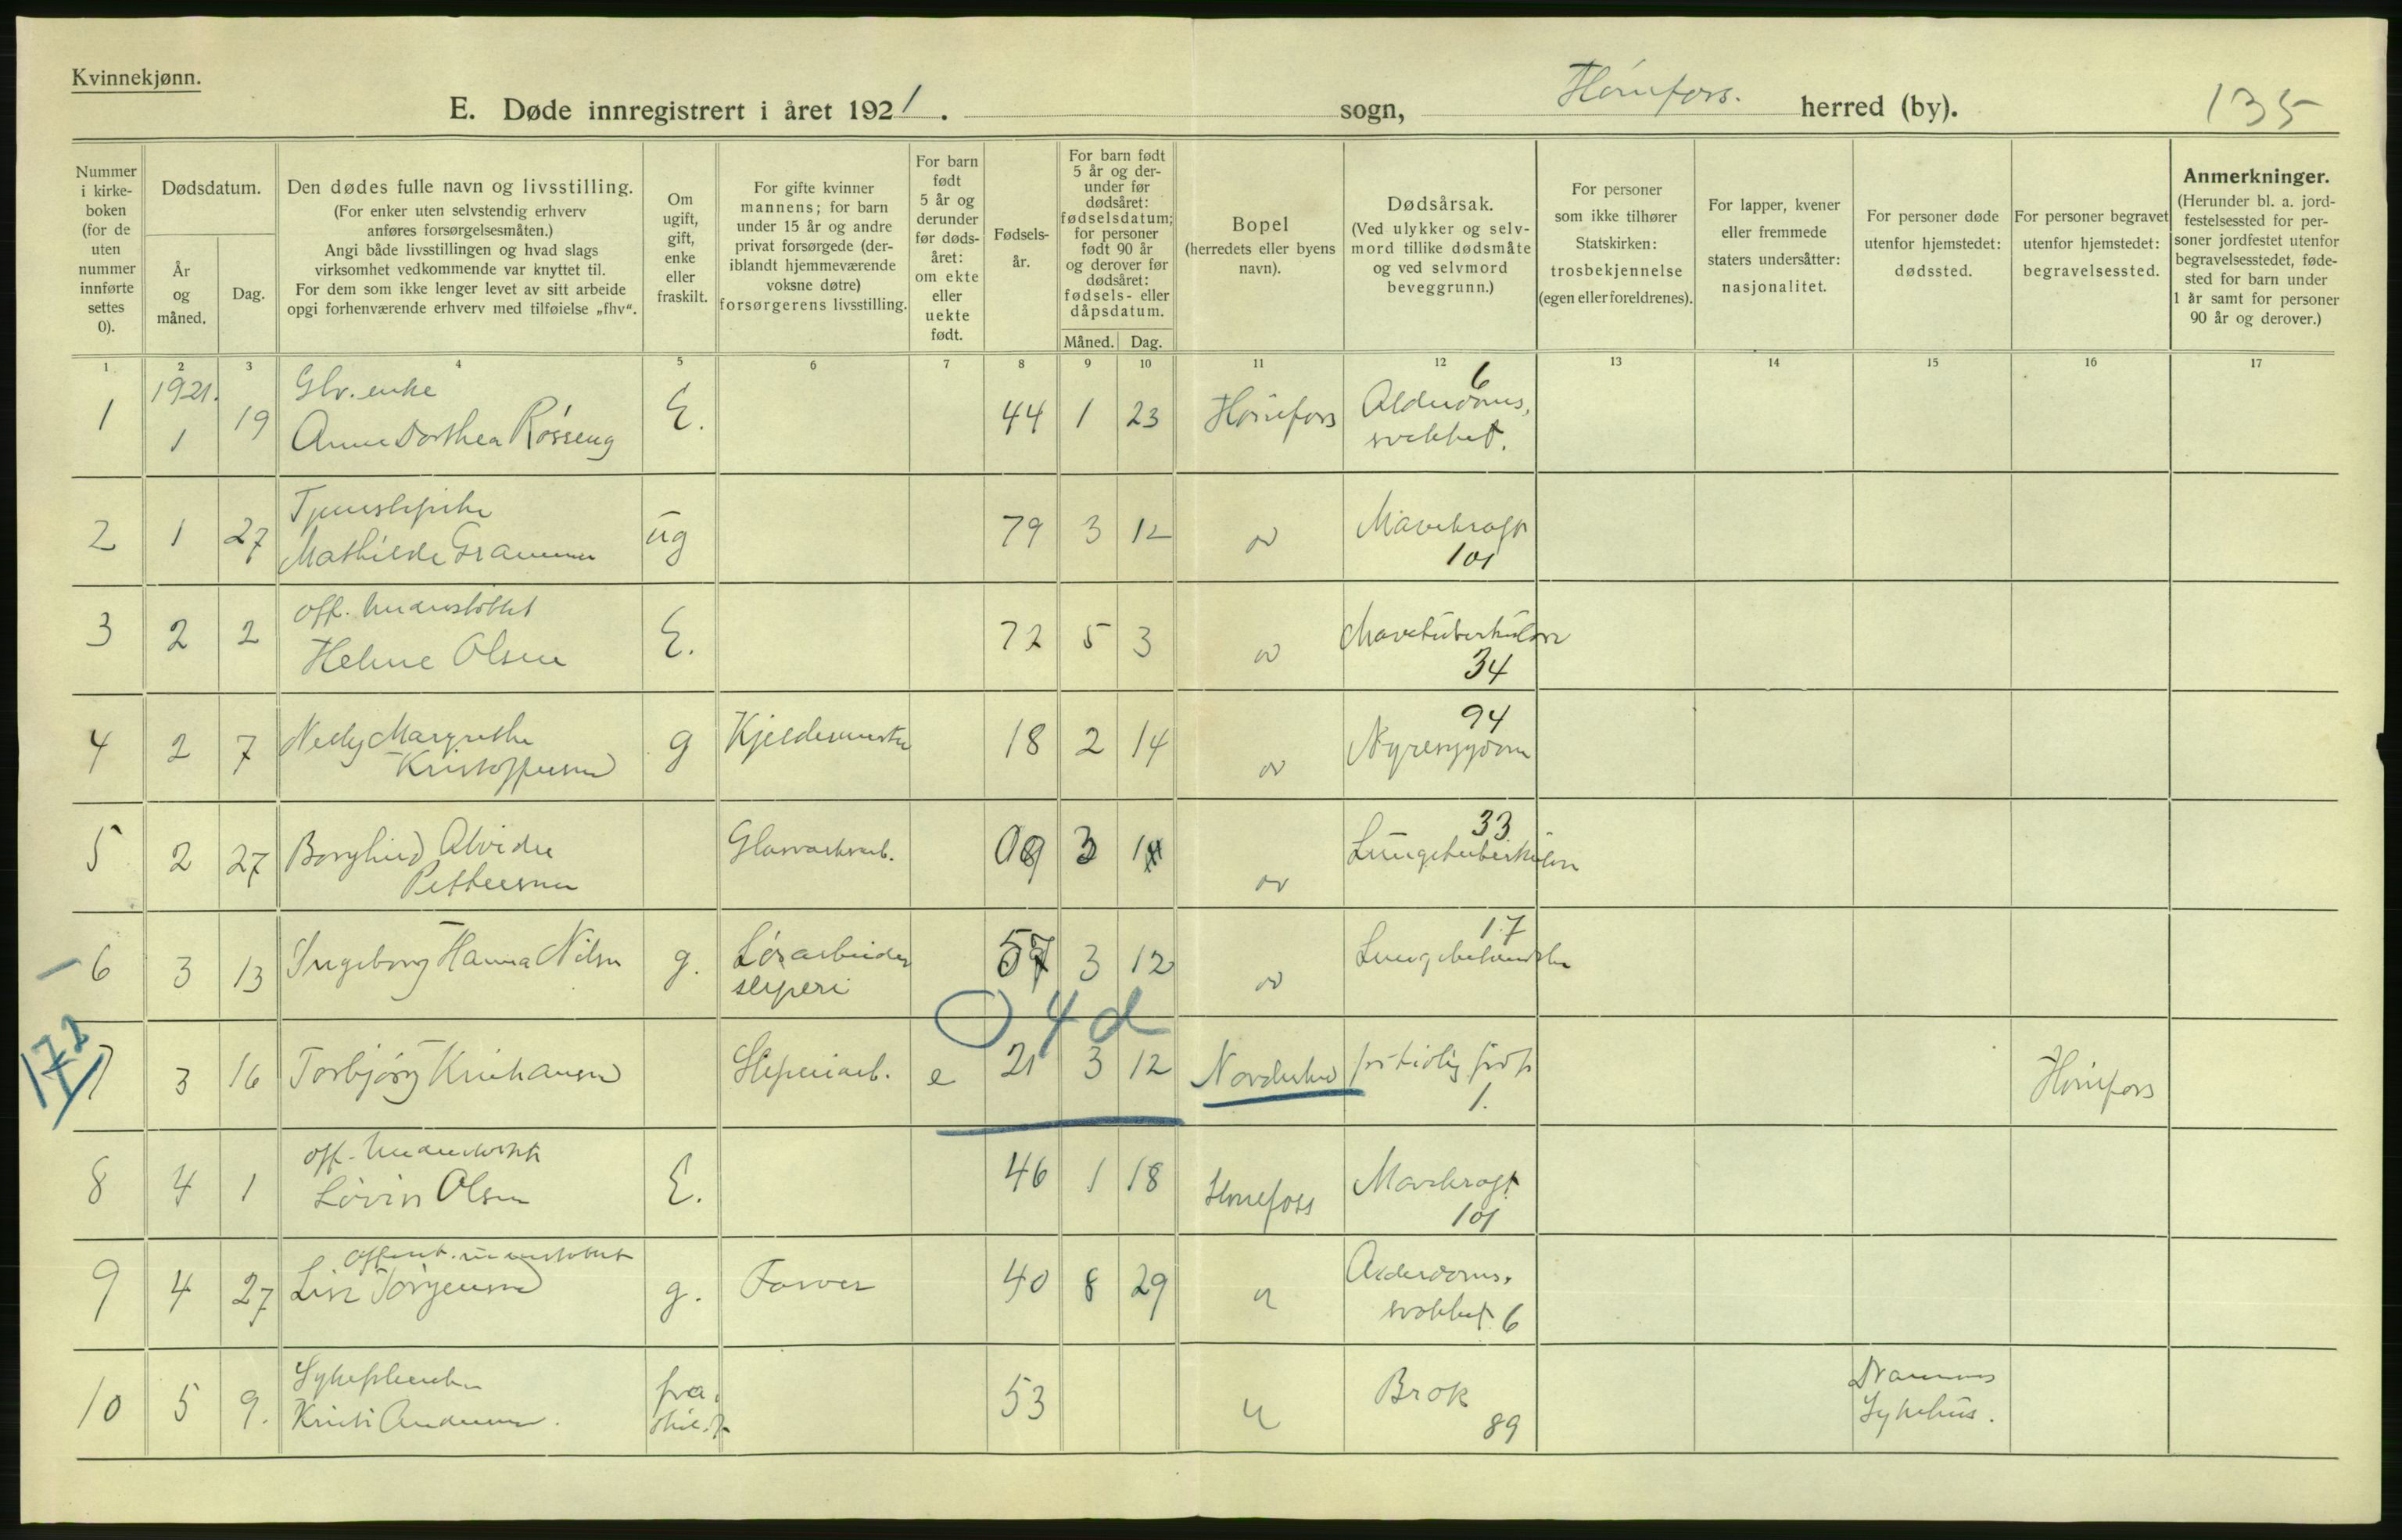 Kvinnekjønn.
E. Døde innregistrert i året 1921. sogn, Hønefoss. herred (by). 135
Nummer i kirke-boken (for de uten nummer innførte settes 0).
Dødsdatum.
År og måned.
Dag.
Den dødes fulle navn og livsstilling.
(For enker uten selvstendig erhverv
anføres forsørgelsesmåten.)
Angi både livsstillingen og hvad slags
virksomhet vedkommende var knyttet til.
For dem som ikke lenger levet av sitt arbeide
opgi forhenværende erhverv med tilføielse „fhv“.
Om ugift, gift, enke eller fraskilt.
For gifte kvinner
mannens; for barn
under 15 år og andre
privat forsørgede (der-
iblandt hjemmeværende
voksne døtre)
forsørgerens livsstilling.
For barn født 5 år og derunder før døds-året: om ekte eller uekte født.
Fødsels-år.
For barn født
5 år og der-
under før
dødsåret:
fødselsdatum;
for personer
født 90 år
og derover før
dødsåret:
fødsels- eller
dåpsdatum.
Måned. Dag.
Bopel
(herredets eller byens
navn).
Dødsårsak.
(Ved ulykker og selv-
mord tillike dødsmåte
og ved selvmord
beveggrunn.)
For personer
som ikke tilhører
Statskirken:
trosbekjennelse
(egen eller foreldrenes).
For lapper, kvener
eller fremmede
staters undersåtter:
nasjonalitet.
For personer døde
utenfor hjemstedet:
dødssted.
For personer begravet
utenfor hjemstedet:
begravelsessted.
Anmerkninger.
(Herunder bl. a. jord-
festelsessted for per-
soner jordfestet utenfor
begravelsesstedet, føde-
sted for barn under
1 år samt for personer
90 år og derover.)
1 2 3 4 5 6 7 8 9 10 11 12 13 14 15 16 17
1921. enke 6
1 1 19 Anne Dorthea Røsseng E. 44 1 23 Hønefoss Alderdoms,
svakhet.
Tjenestepike
2 1 27 Mathilde ug 79 3 12 Mavekraft
101
off. understøttet
3 2 2 Helene Olsen E. 72 5 3 Mavetuberkulose
34
94
4 2 7 Nelly Margrethe g 18 2 14 Nyresygdom
Kristoffersen
33
5 2 27 Borghild Alvide Glasverksarb. 09 3 Lungetuberkulose
Pettersen
17
6 3 13 Ingeborg Hanna Nilsen g. Løsarbeider 57 3 12 Lungebetendelse
sliperi
O 4 d
172
7 3 16 Torbjørg Kristiansen Sliperiarb. e 21 3 12 Norderhov for tidlig født Hønefoss
1.
off. understøttet
8 4 1 Lovise Olsen E. 46 1 18 Hønefoss Mavekraft
101
Offent. understøttet
9 4 27 Lise Jørgensen g. Farver 40 8 29 Alderdoms,
svakhet. 6
10 5 9. Sykepleierske fra, 53 Brok Drammens
Kristi Andersen. skilt 89 Sykehus.